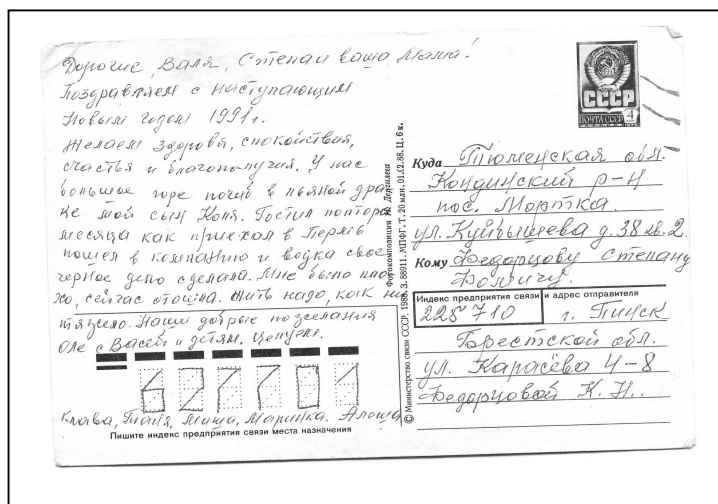 Дорогие, Валя, Степан и ваша Мама!
Поздравляем с наступающим
Новым годом 1991г.
Желаем здоровья, спокойствия,
счастья и благополучия. У нас
большое горе погиб в пьяной дра
ке мой сын Коля. Гостил полтора
месяца как приехал в Пермь
пошел в компанию и водка свое
черное дело сделала. Мне было пло
хо, сейчас отошла. Жить надо, как ни
тяжело. Наши добрые пожелания
Оле с Васей и детям. Целуем.
Клава, Таня, Миша, Маринка. Алеша
627701
Пишите индекс предприятия связи места назначения
© Министерство связи СССР, 1988. З. 88911. МПФГ. Т. 20 млн. 01.02.88. Ц. 6 к.
Фотокомпозиция Ю. Дергилева
СССР
ПОЧТА СССР 4
Куда Тюменская обл.
Кондинский р-н
пос. Мортка
ул. Куйбышева д. 38 кв. 2
Кому Федорцову Степану
Фомичу.
Индекс предприятия связи и адрес отправителя
225710 г. Пинск
Брестской обл.
ул. Карасёва 4-8
Федорцовой К. Н.